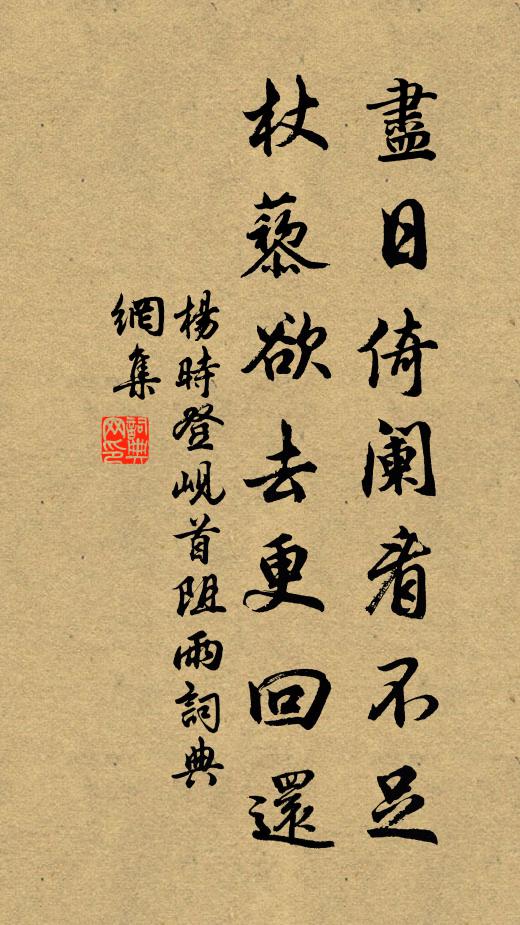 盡日倚闌看不足
杖藜欲去更回還
楊時登峴首阻雨詞典
網集
詞典網印